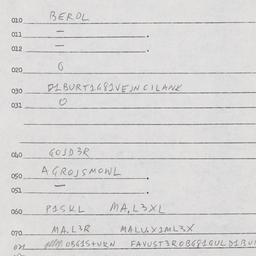 010 BERDL
011 —
012 —
020 0
030 D1BURT1G81VEJNCILANK
031 0
040 GOJD3R
050 AGROJSMOWL
051 —
060 P1SKL MA,L3XL
070 MA,L3R MALUX1ML3X
071 OBG1S+UKN FAVUST3ROBG81GULD1BU